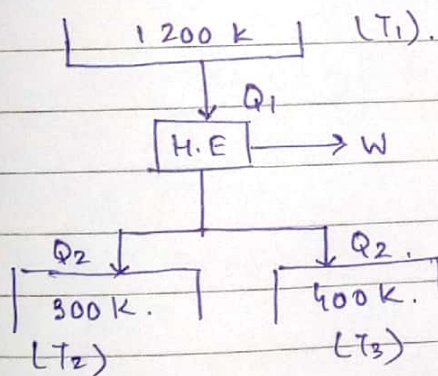 1200 K (T1).
Q1
H.E → W
Q2 Q2.
300 K. 400 K.
(T2) (T3)